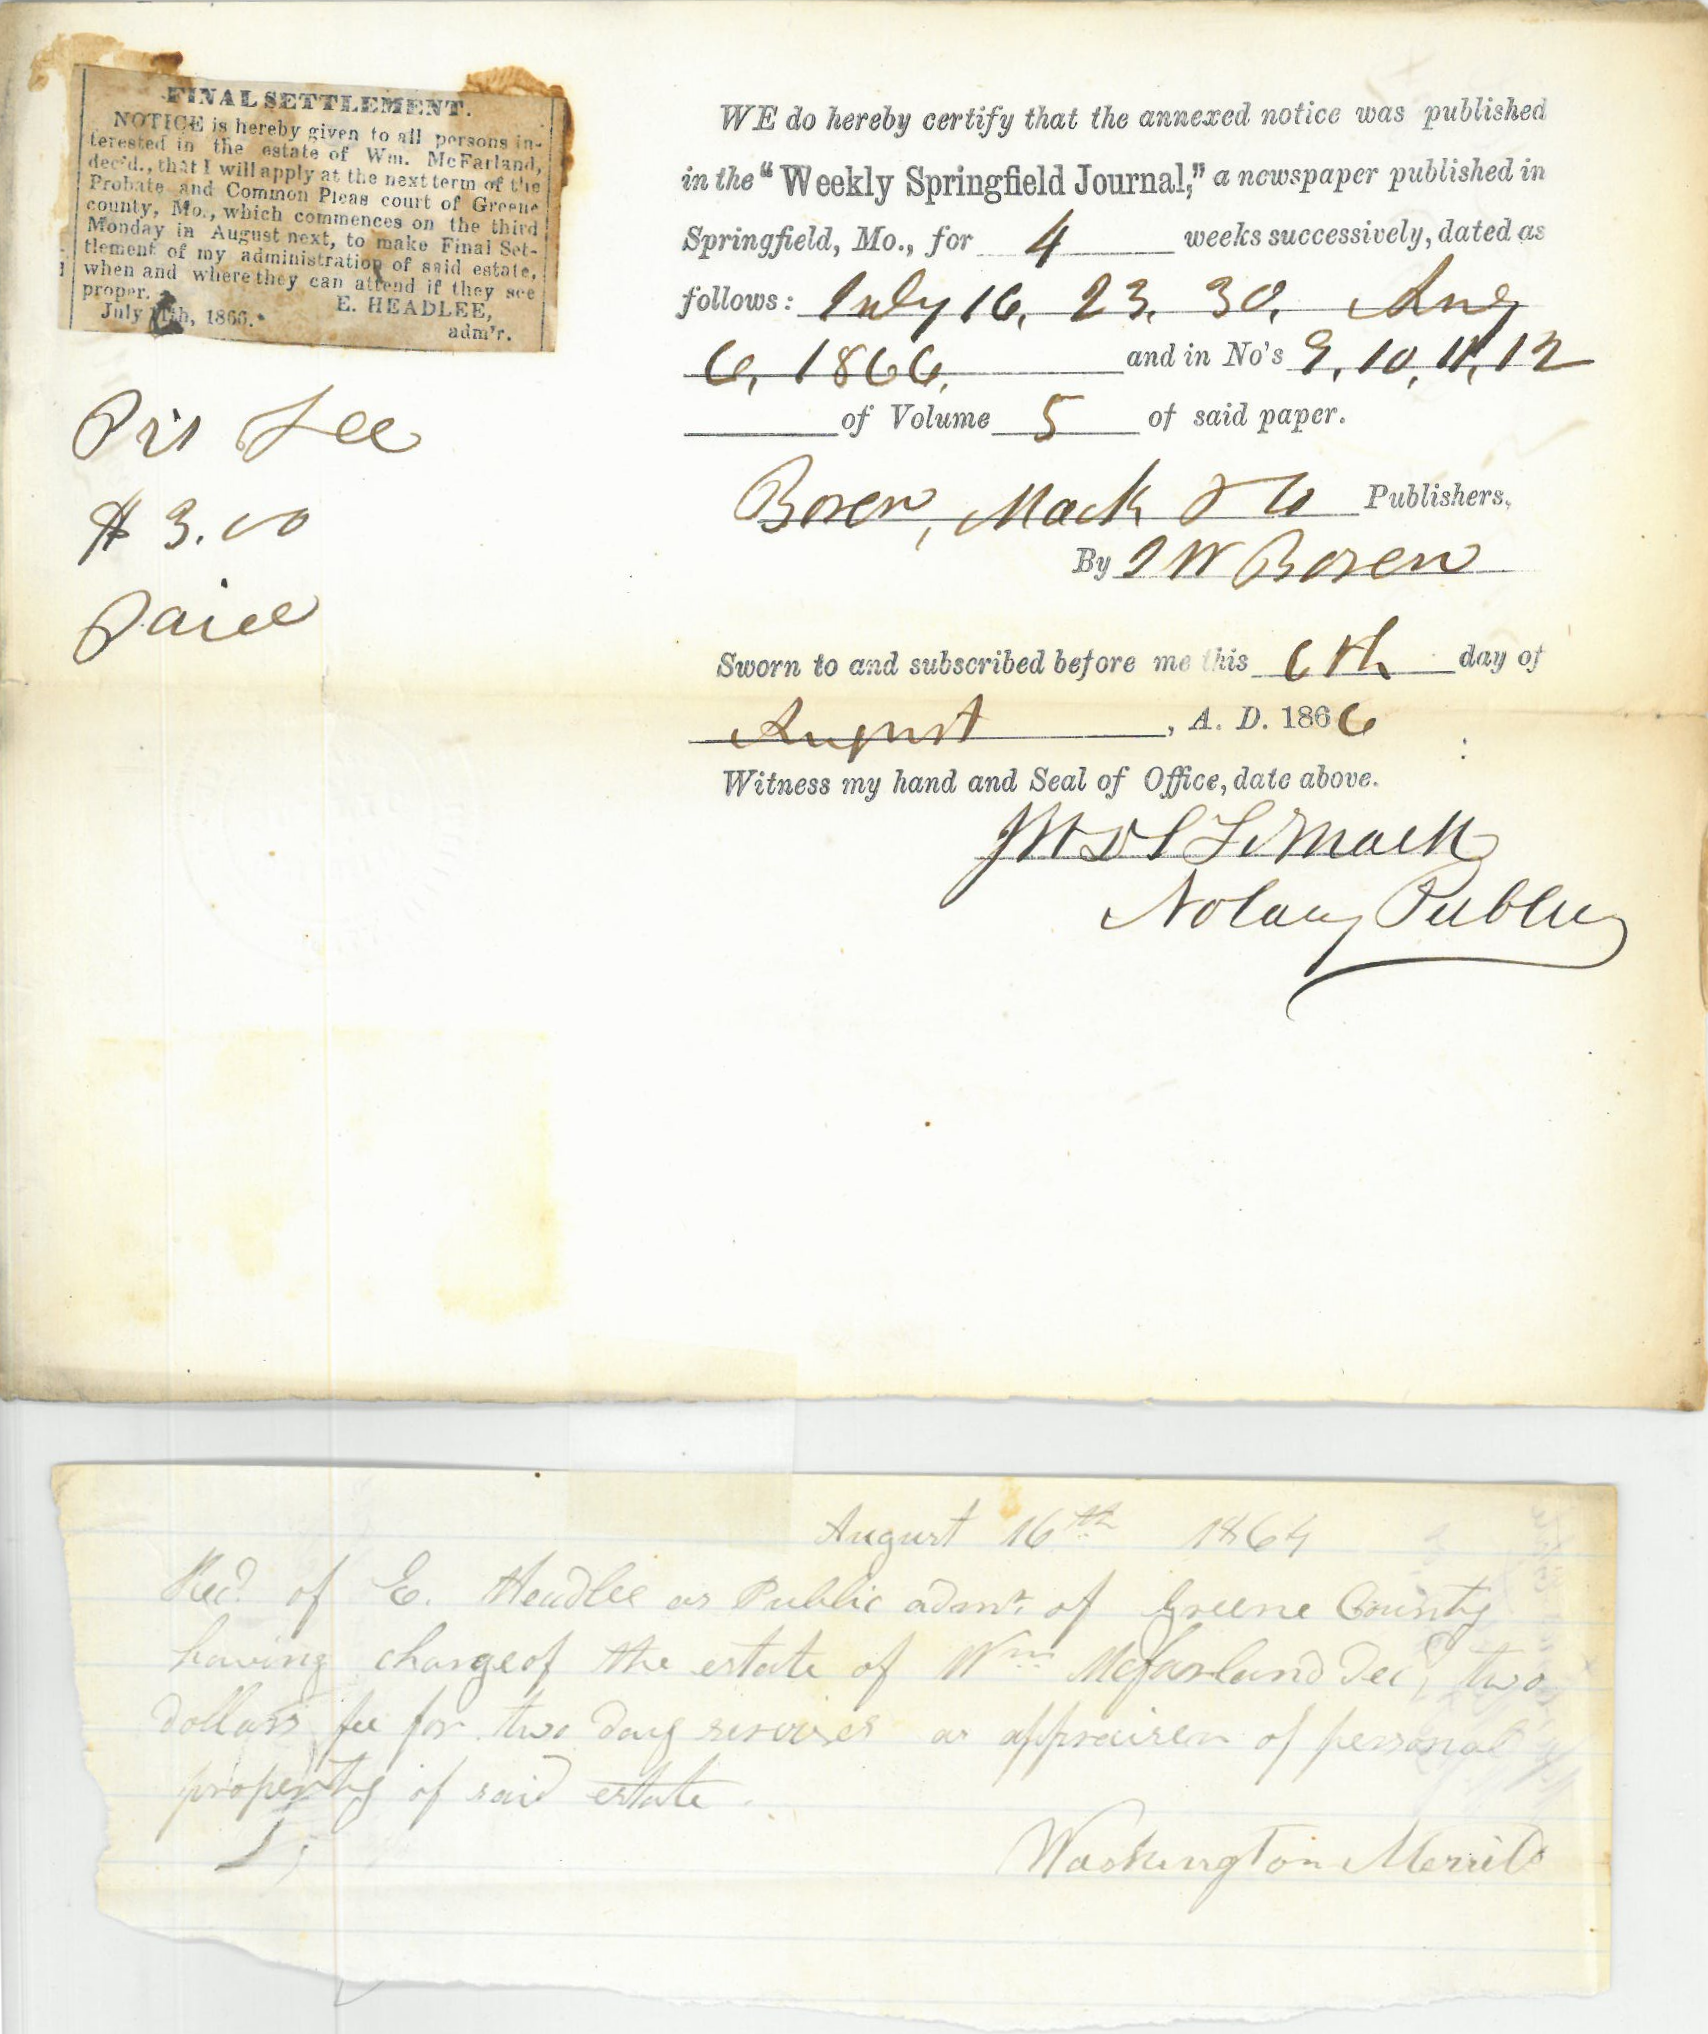 FINAL SETTLEMENT.
NOTICE is hereby given to all persons in-
terested in the estate of Wm. McFarland,
dec'd., that I will apply at the next term of the
Probate and Common Pleas court of Greene
county, Mo., which commences on the third
Monday in August next, to make Final Set-
tlement of my administration of said estate,
when and where they can attend if they see
proper.
E. HEADLEE,
July 11th, 1866.
adm'r.
Prs Fee
$ 3.00
Paid
WE do hereby certify that the annexed notice was published
in the "Weekly Springfield Journal," a newspaper published in
Springfield, Mo., for 4 weeks successively, dated as
follows: July 16, 23, 30, Aug
6, 1866, and in No's 9, 10, 11, 12
of Volume 5 of said paper.
Boren, Mack & Co Publishers,
By J W Boren
Sworn to and subscribed before me this 6th day of
August, A. D. 1866
Witness my hand and Seal of Office, date above.
Mack
Notary Public
August 16th 1864
Recd of E. Headlee as Public admr. of Greene County
having charge of the estate of Wm McFarland Decd, two
dollars fee for two days services as appraiser of personal
property of said estate.
Washington Merrill